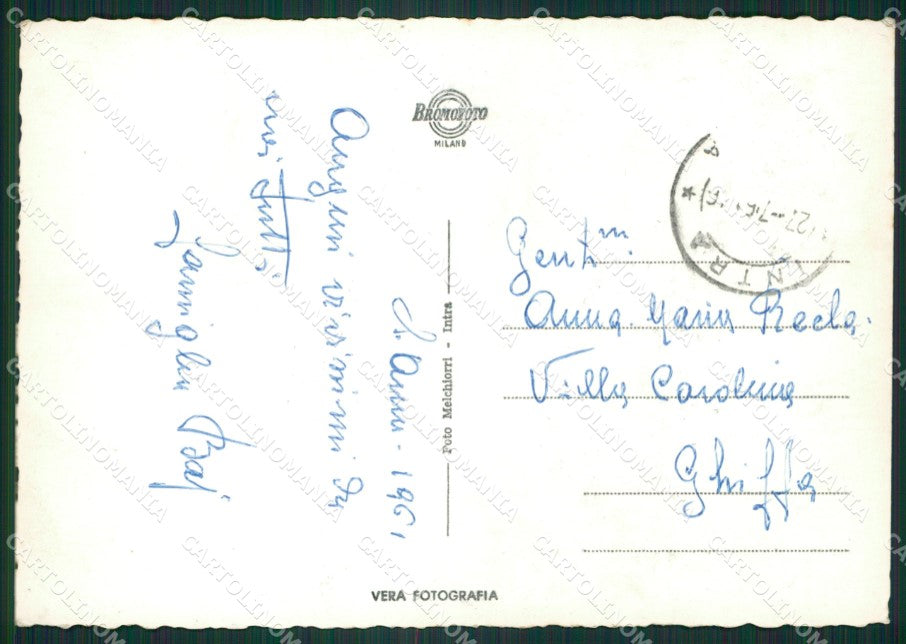 BROMOFOTO
MILANO
S. Anna - 1961
Auguri vivissimi da
noi tutti
Famiglia Baj
Foto Melchiorri - Intra
INTRA
27-7-61
Gent.ma
Anna Maria Recla.
Villa Carolina
Ghiffa
VERA FOTOGRAFIA
CARTOLINOMANIA